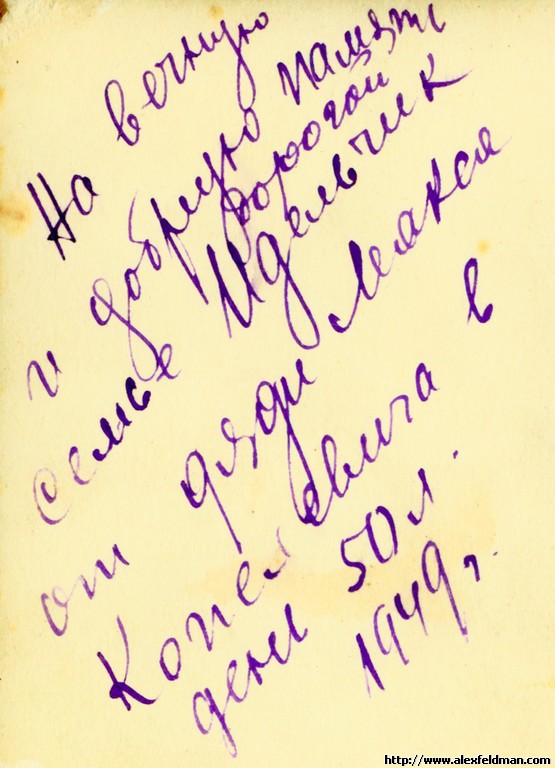 На вечную
и добрую память
дорогой
семье Идельчик
от дяди Макса
Копелевича в
день 50 л.
1949 г.
http://www.alexfeldman.com